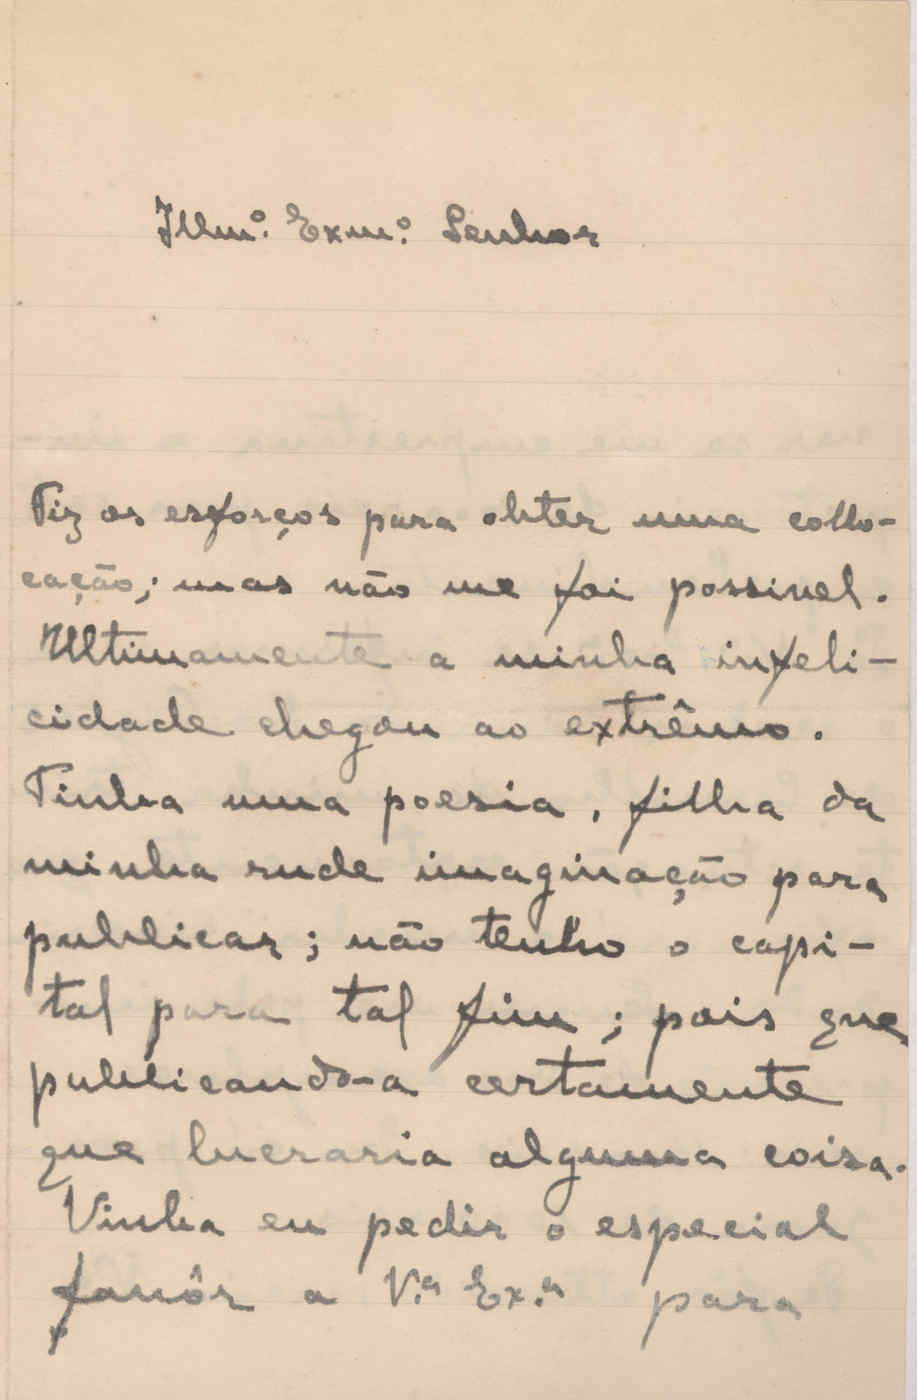 Illmº. Exmº. Senhor
Fiz os esforços para obter uma collo-
cação; mas não me foi possivel.
Ultimamente a minha infeli-
cidade chegou ao extrêmo.
Tinha uma poesia, filha da
minha rude imaginação para
publicar; não tenho o capi-
tal para tal fim; pois que
publicando-a certamente
que lucraria alguma coisa.
Vinha eu pedir o especial
favôr a V.ª Ex.ª para